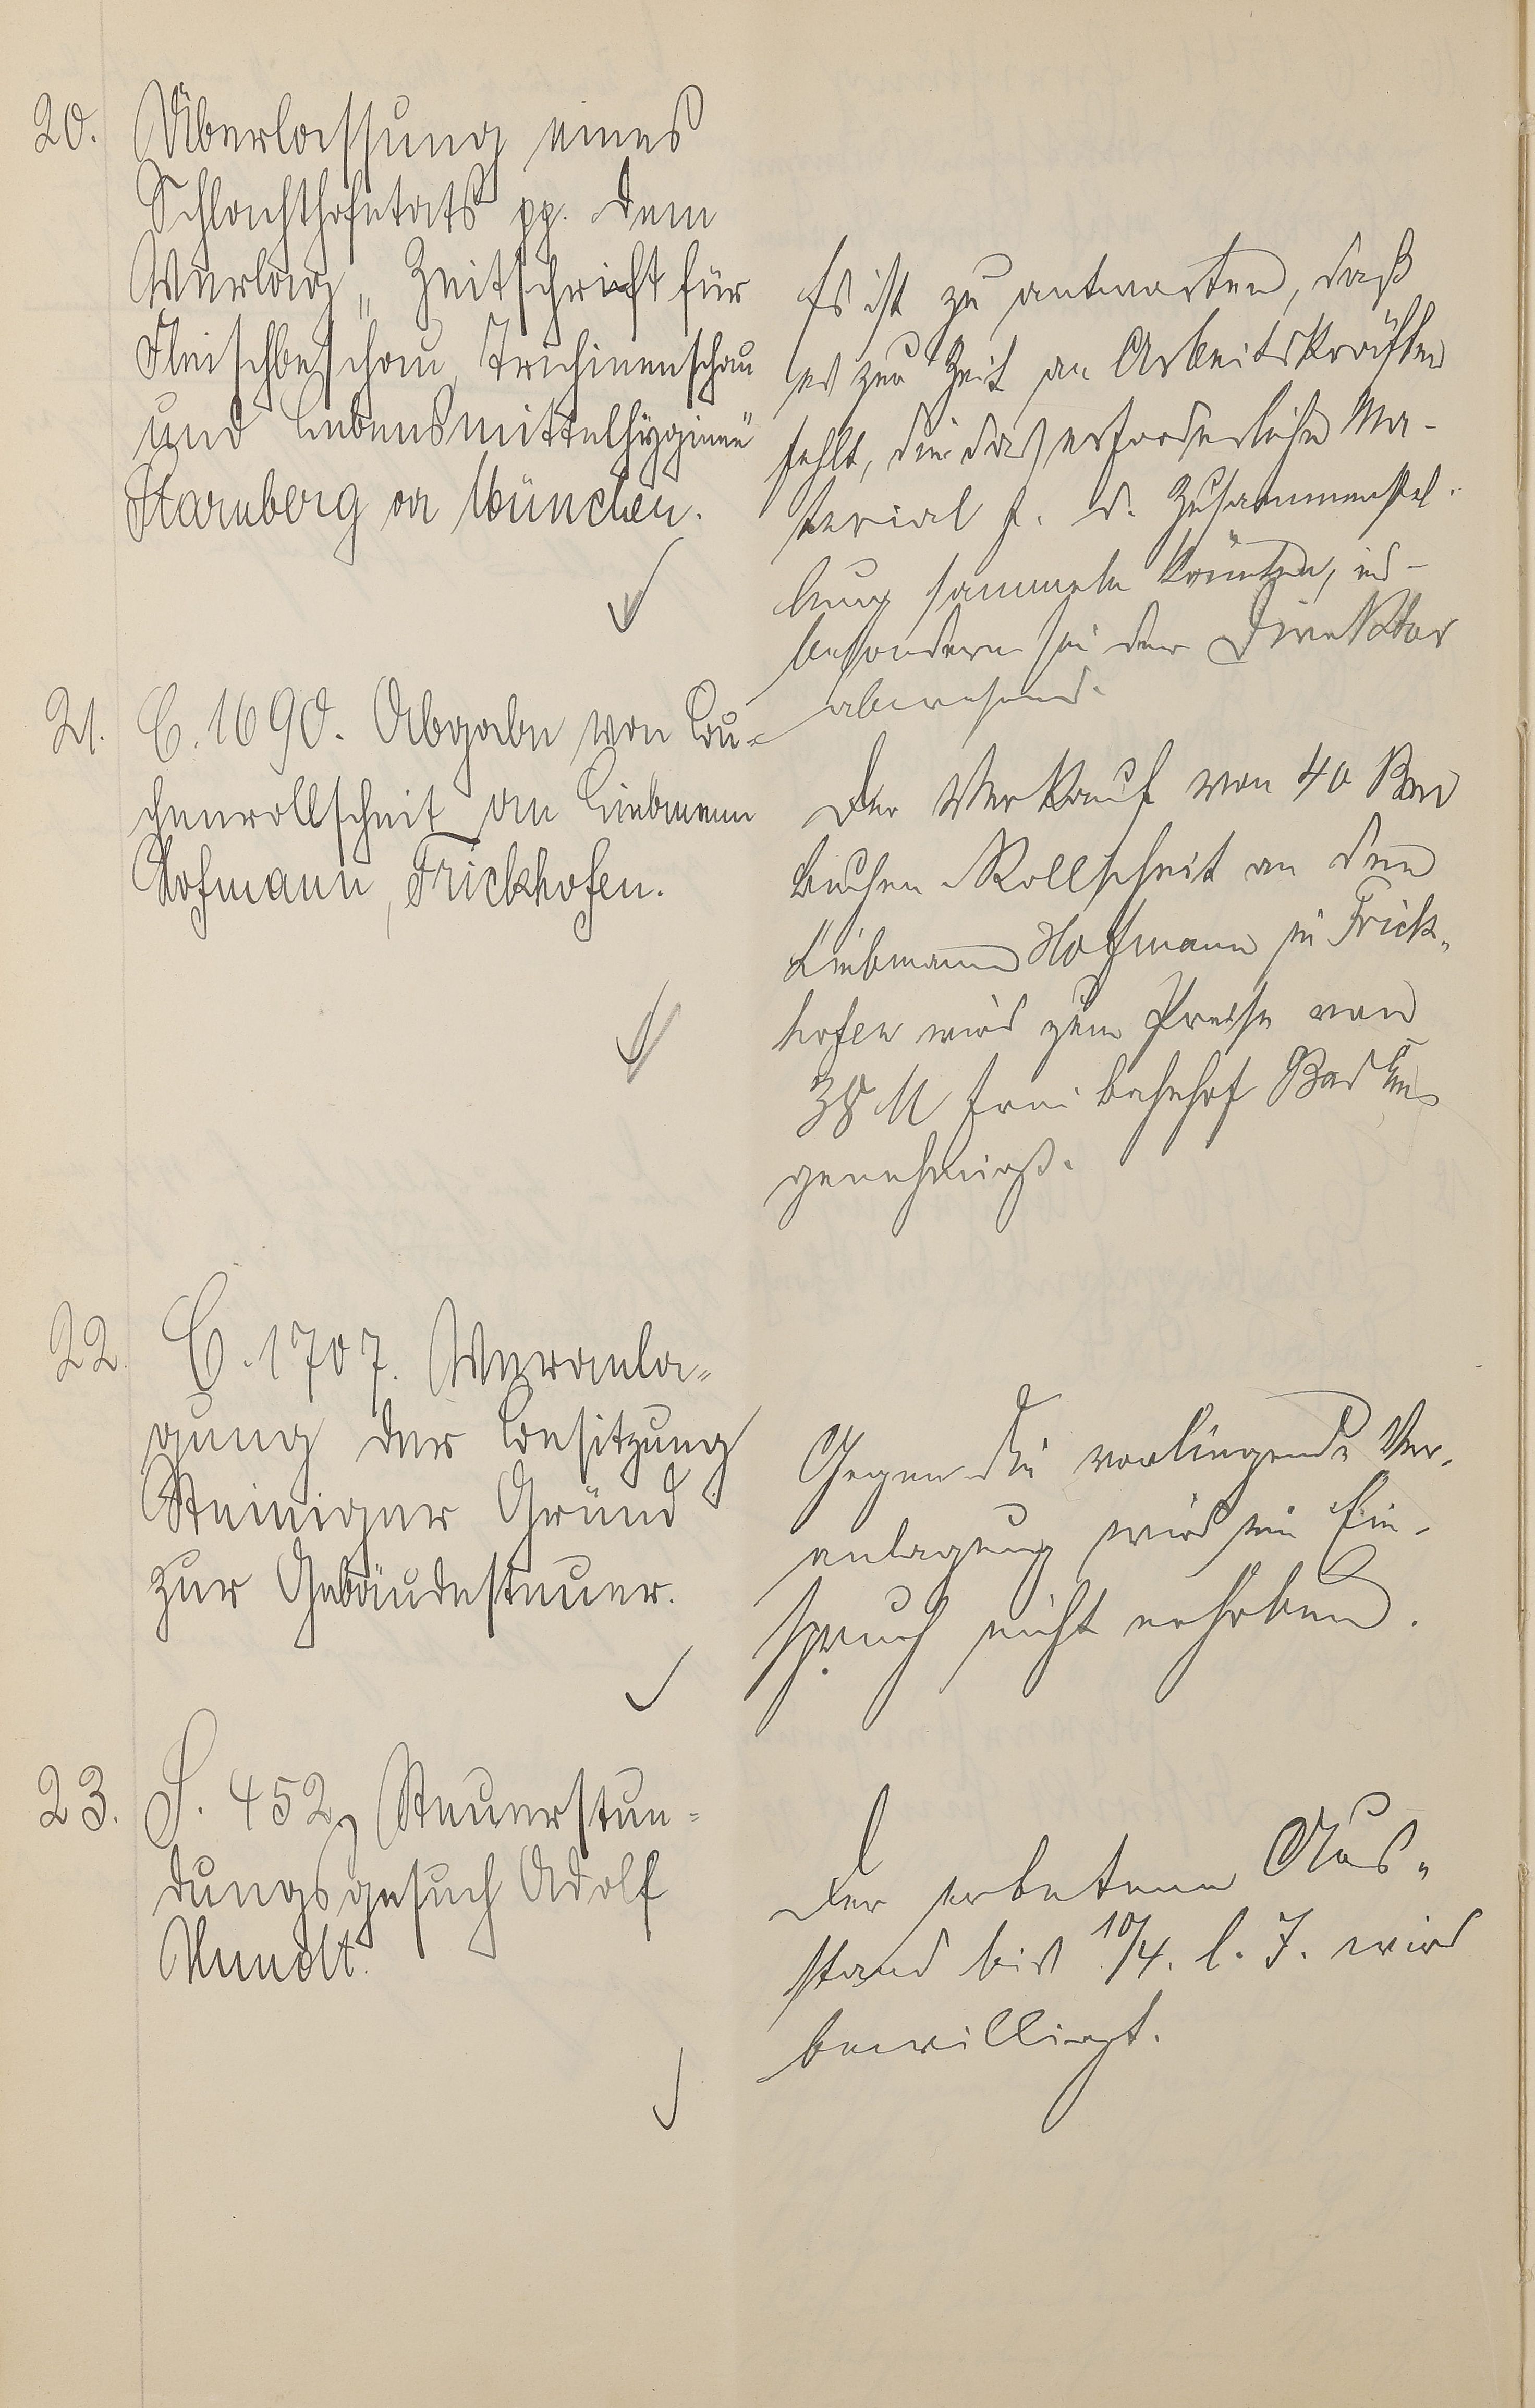 20. Überlassung eines
Schlachthofetats pp. dem
Verlag „Zeitschrift für
Fleischbeschau, Trichinenschau
und Lebensmittelhygiene"
Starnberg a München.
Es ist zu antworten, daß
es zur Zeit an Arbeitskräften
fehlt, die das erforderliche Ma-
terial f. d. Zusammenstel-
lung sammeln könnten, ins-
besondere sei der Direktor
abwesend.
21. C. 1690. Abgabe von Bu-
chenrollscheit an Liebmann
Hofmann, Frickhofen.
Der Verkauf von 40 Rm
buchen Rollscheit an den
Liebmann Hofmann in Frick-
hofen wird zum Preise von
M frei Bahnhof Bad Ems
genehmigt.
22. C. 1707. Veranla-
gung der Besitzung
Steiniger Gründ
zur Gebäudesteuer.
Gegen die vorliegende Ver-
anlagung wird ein Ein-
spruch nicht erhoben.
23. S. 452, Steuerstun-
dungsgesuch Adolf
Der erbetene Aus-
stand bis 10/4. l. J. wird
bewilligt.